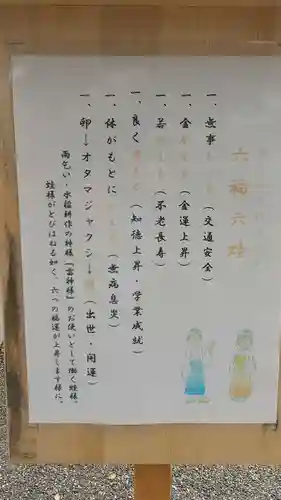 六福六蛙
一、無事かえる(交通安全)
一、金かえる(金運上昇)
一、若かえる(不老長寿)
一、良くかえる(知徳上昇・学業成就)
一、体がもとにかえる(無病息災)
一、卵→オタマジャクシ→蛙(出世・開運)
雨乞い・水稲耕作の神様「雷神様」のお使いとして働く蛙様。
蛙様がとびはねる如く、六つの福運が上昇します様に。